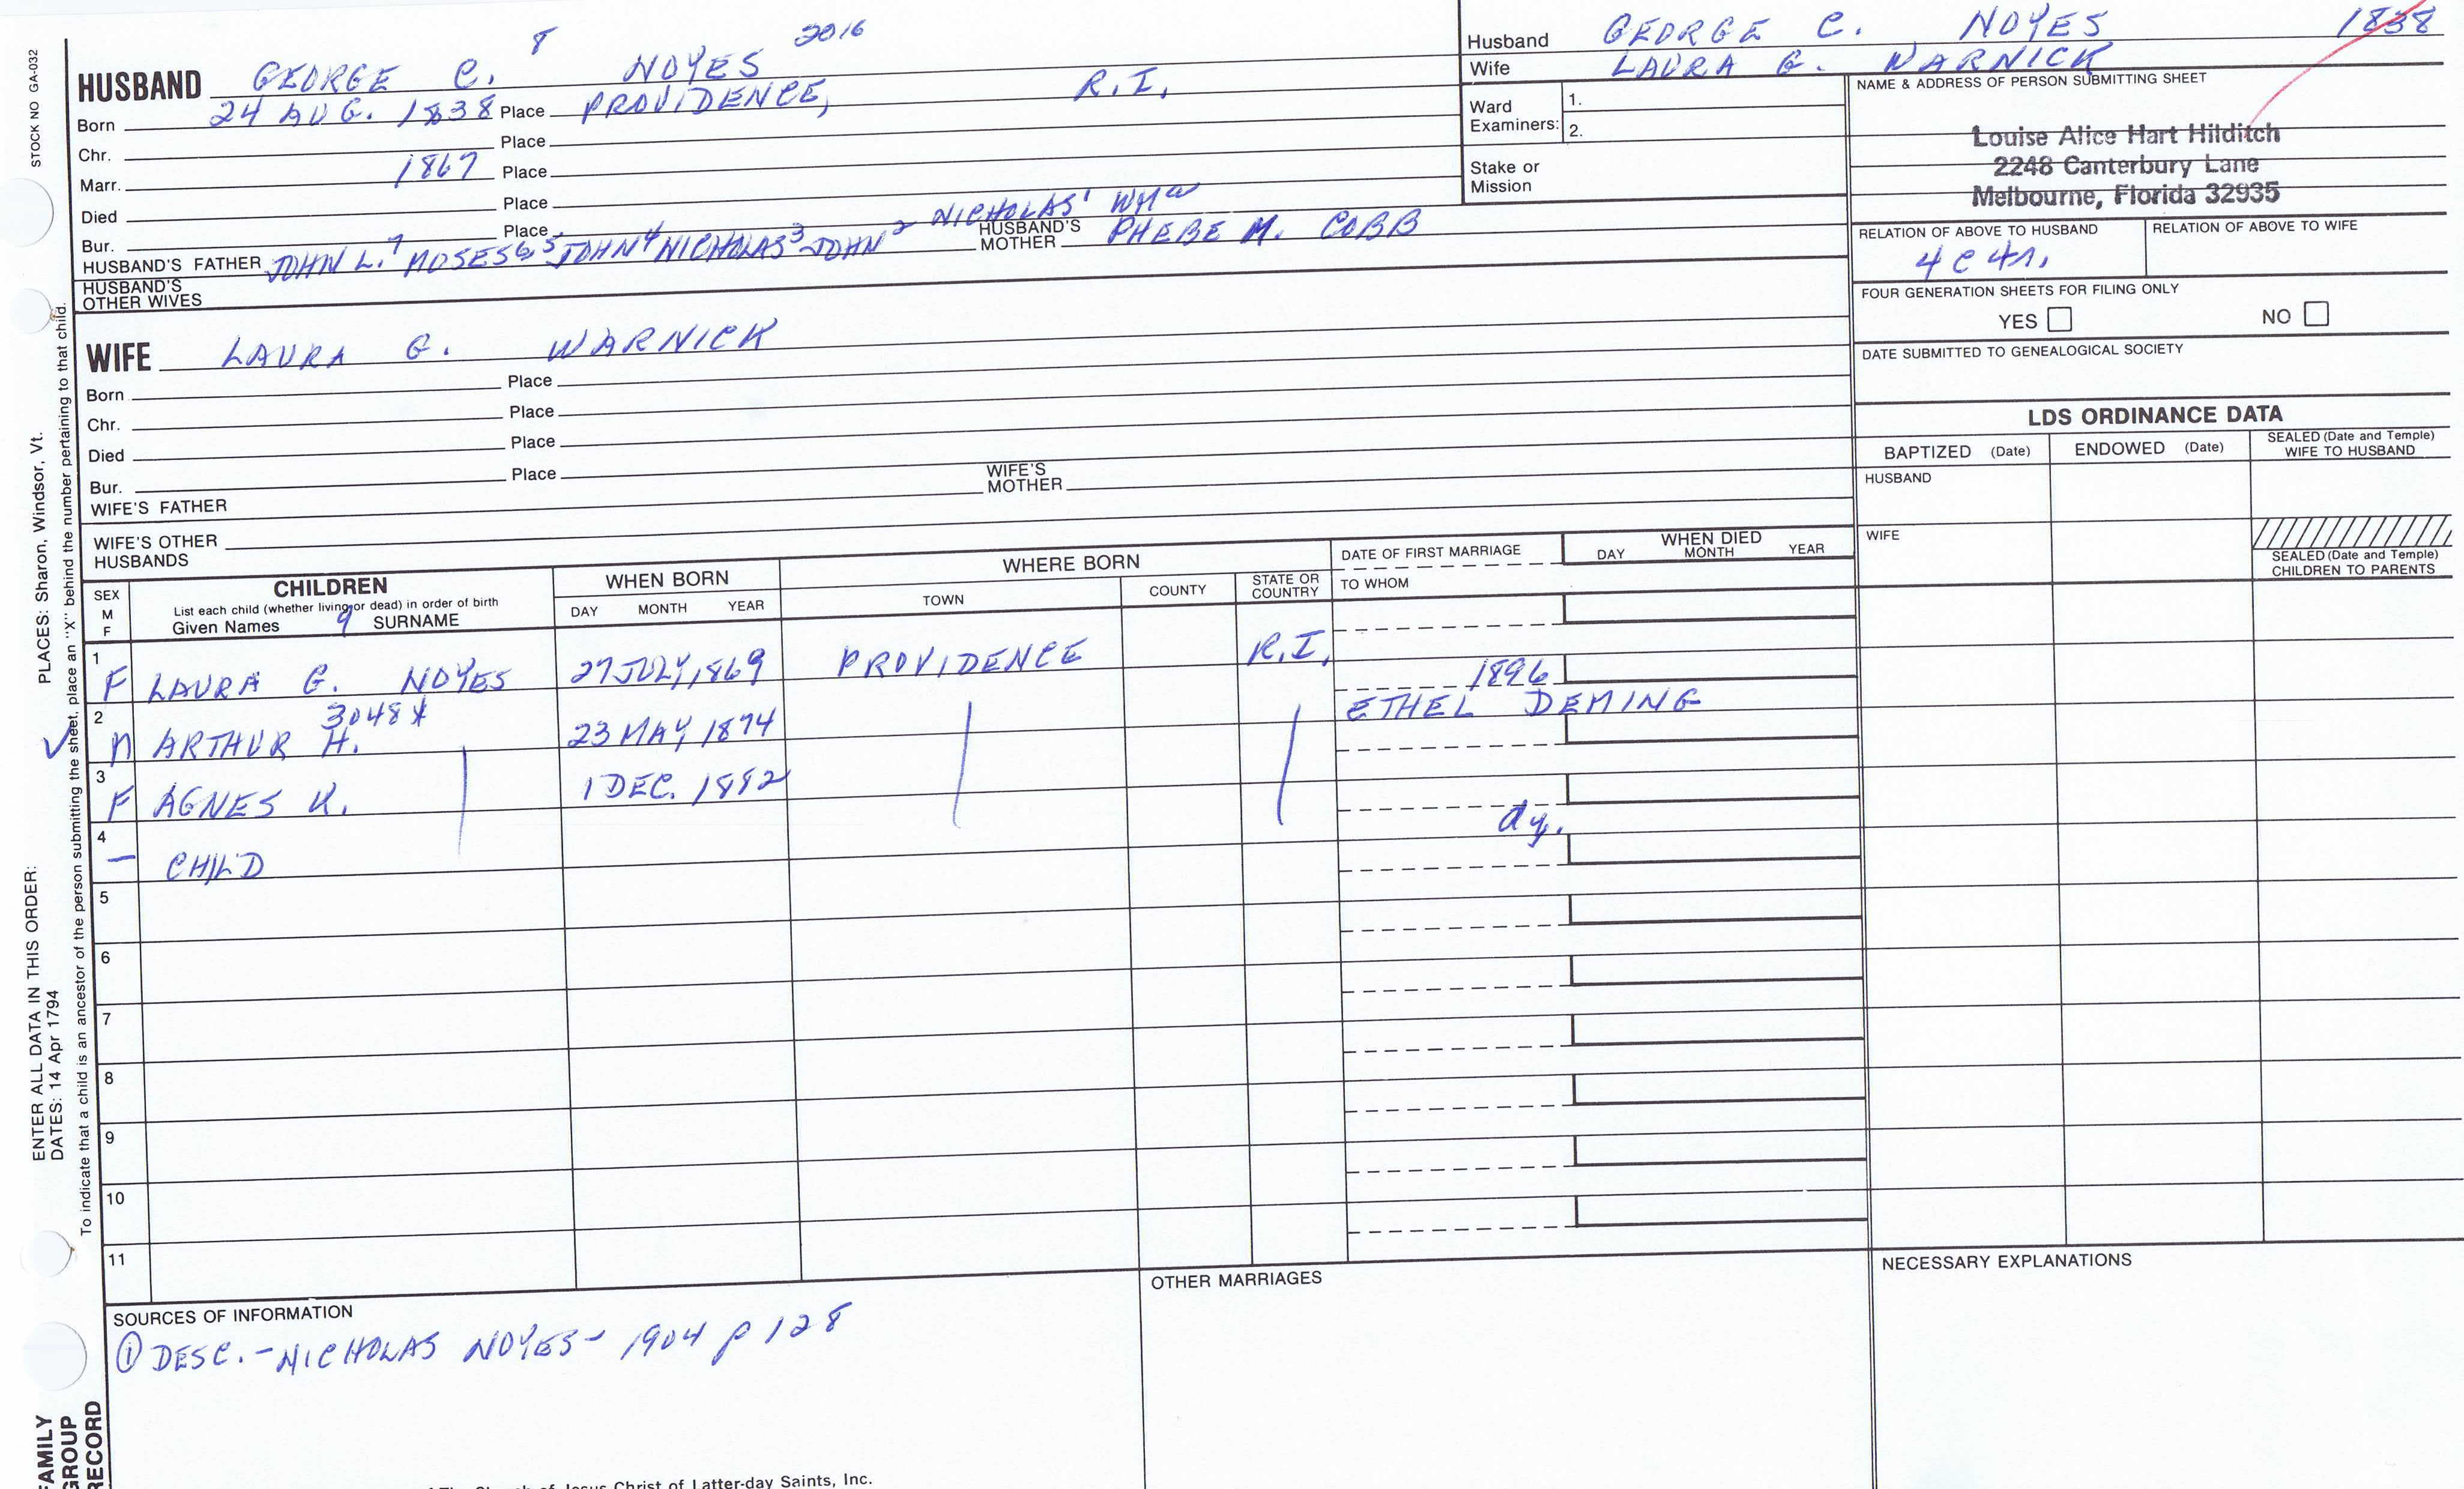 8 2016
HUSBAND GEORGE C. NOYES
Born 24 AUG. 1838 Place PROVIDENCE, R.I.
Chr. Place
Marr. 1867 Place
Died Place
Bur. Place NICHOLAS' WMA
HUSBAND'S FATHER JOHN L.7 MOSES6 5 JOHN4 NICHOLAS3 JOHN2 HUSBAND'S MOTHER PHEBE M. COBB
HUSBAND'S OTHER WIVES
WIFE LAURA G. WARNICK
Born Place
Chr. Place
Died Place
Bur. Place
WIFE'S FATHER WIFE'S MOTHER
WIFE'S OTHER HUSBANDS
Husband GEORGE C. NOYES 1838
Wife LAURA G. WARNICK
Ward Examiners: 1.
2.
Stake or Mission
NAME & ADDRESS OF PERSON SUBMITTING SHEET
Louise Alice Hart Hilditch
2248 Canterbury Lane
Melbourne, Florida 32935
RELATION OF ABOVE TO HUSBAND RELATION OF ABOVE TO WIFE
4 C 4 r.
FOUR GENERATION SHEETS FOR FILING ONLY
YES NO
DATE SUBMITTED TO GENEALOGICAL SOCIETY
LDS ORDINANCE DATA
BAPTIZED (Date) ENDOWED (Date) SEALED (Date and Temple) WIFE TO HUSBAND
HUSBAND
WIFE
SEALED (Date and Temple) CHILDREN TO PARENTS
SEX M F CHILDREN WHEN BORN WHERE BORN DATE OF FIRST MARRIAGE WHEN DIED
List each child (whether living or dead) in order of birth DAY MONTH YEAR TOWN COUNTY STATE OR COUNTRY TO WHOM DAY MONTH YEAR
Given Names 9 SURNAME
1 F LAURA G. NOYES 27 JULY, 1869 PROVIDENCE R.I.
1896
2 M ARTHUR H. 3048* 23 MAY, 1874 ETHEL DEMING
3 F AGNES K. 1 DEC. 1882
4 – CHILD dy.
5
6
7
8
9
10
11
SOURCES OF INFORMATION
① DESC. - NICHOLAS NOYES - 1904 p 128
OTHER MARRIAGES
NECESSARY EXPLANATIONS
STOCK NO GA-032
PLACES: Sharon, Windsor, Vt.
ENTER ALL DATA IN THIS ORDER:
DATES: 14 Apr 1794
To indicate that a child is an ancestor of the person submitting the sheet, place an "X" behind the number pertaining to that child.
FAMILY
GROUP
RECORD
Church of Jesus Christ of Latter-day Saints, Inc.